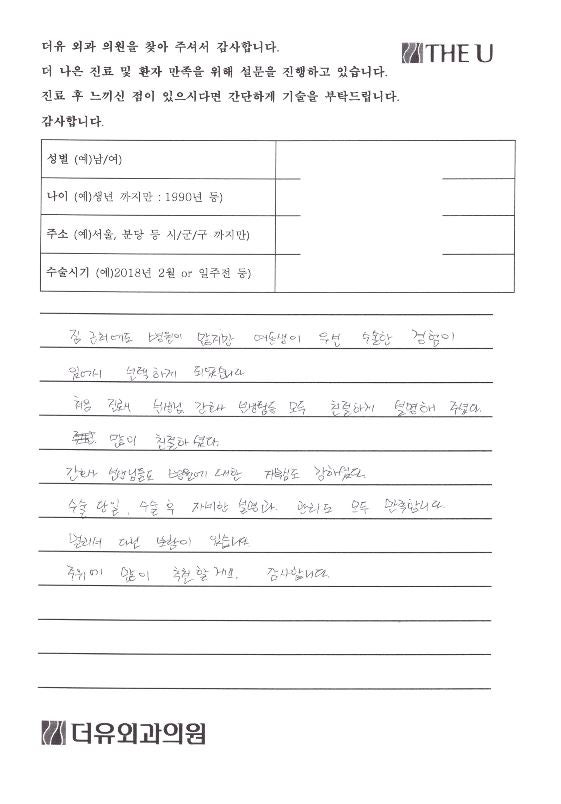 더유 외과 의원을 찾아 주셔서 감사합니다.
THE U
더 나은 진료 및 환자 만족을 위해 설문을 진행하고 있습니다.
진료 후 느끼신 점이 있으시다면 간단하게 기술을 부탁드립니다.
감사합니다.
성별 (예)남/여)
나이 (예)생년 까지만 : 1990년 등)
주소 (예)서울, 분당 등 시/군/구 까지만)
수술시기 (예)2018년 2월 or 일주전 등)
집 근처에도 병원이 많지만 여동생이 우선 수술한 경험이
있어서 선택하게 되었습니다
처음 진료 선생님 간호사 선생님들 모두 친절하게 설명해 주셨다.
많이 친절하셨다.
간호사 선생님들도 병원에 대한 자부심도 강하셨다.
수술 당일, 수술 후 자세한 설명과 관리도 모두 만족합니다.
멀리서 다닌 보람이 있습니다
주위에 많이 추천할게요. 감사합니다.
더유외과의원